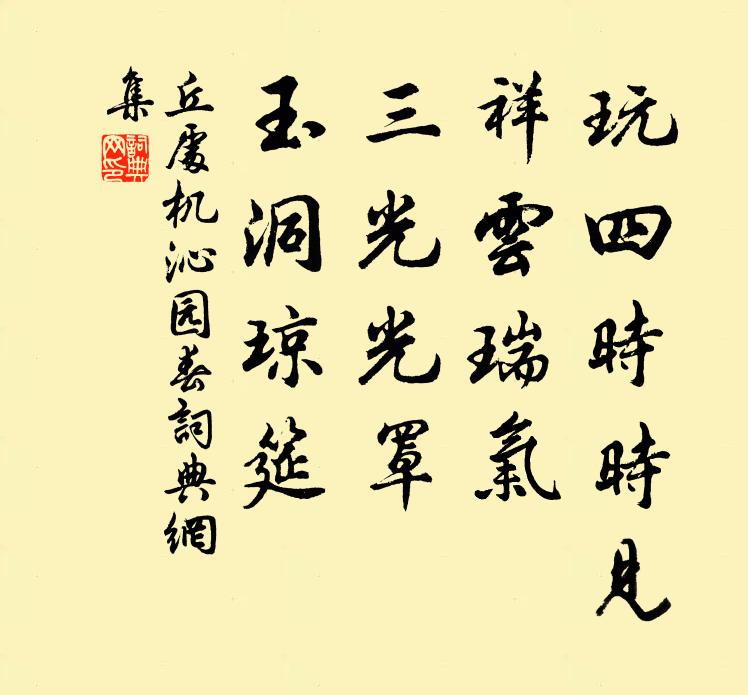 玩四時時見
祥雲瑞氣
三光光罩
玉洞琼筵
丘處机沁园春詞典網
集
詞典
网印